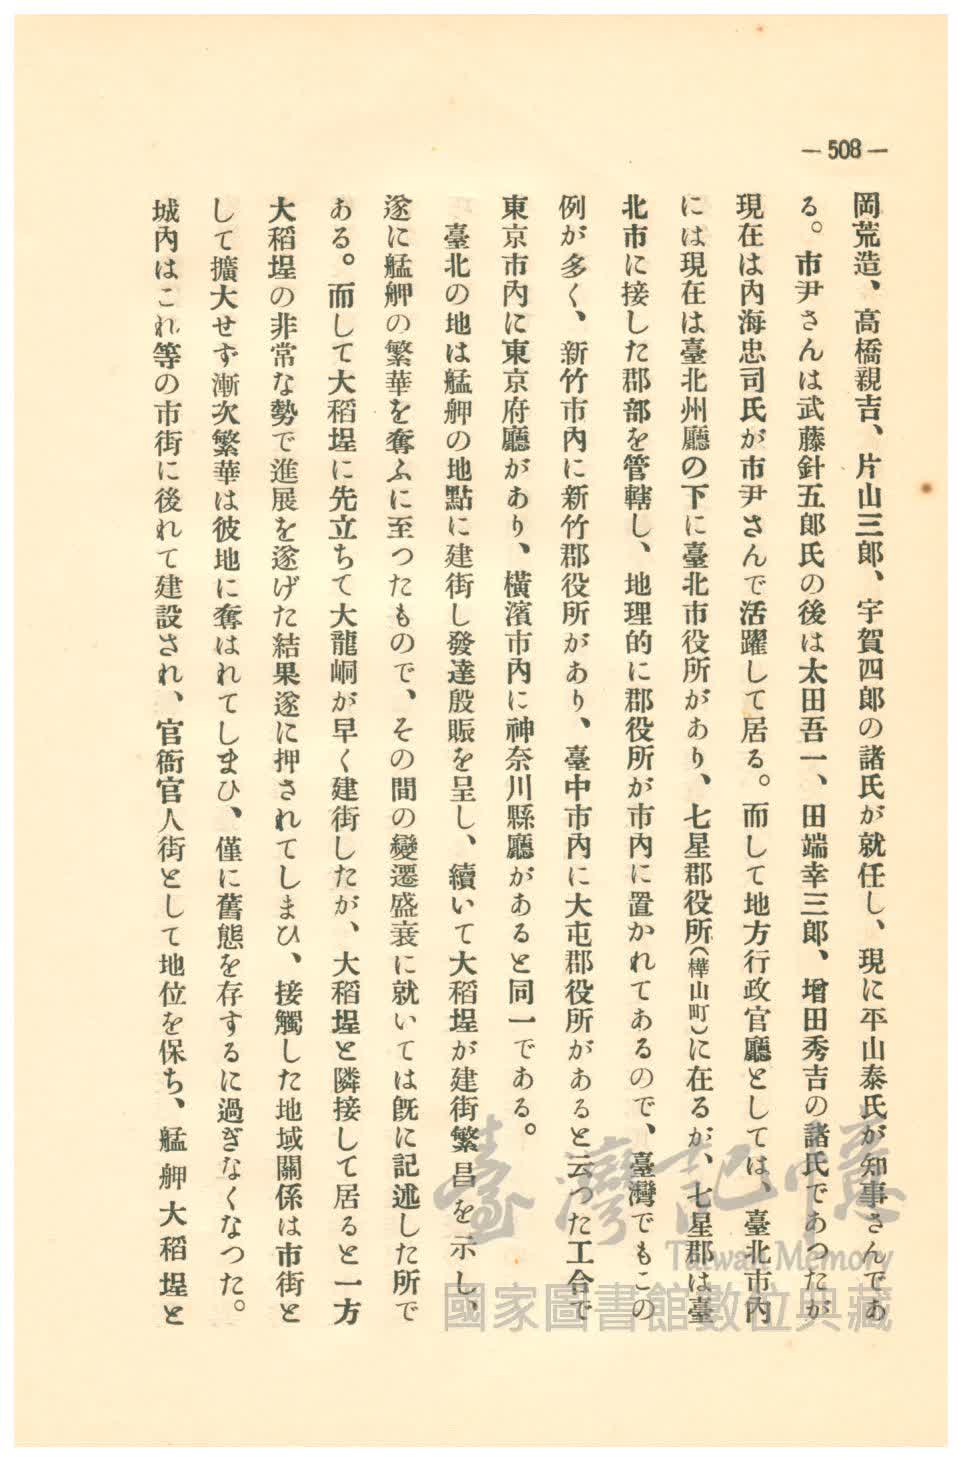 — 508 —
岡荒造、高橋親吉、片山三郎、宇賀四郎の諸氏が就任し、現に平山泰氏が知事さんであ
る。市尹さんは武藤針五郎氏の後は太田吾一、田端幸三郎、增田秀吉の諸氏であつたが
現在は內海忠司氏が市尹さんで活躍して居る。而して地方行政官廳としては、臺北市內
には現在は臺北州廳の下に臺北市役所があり、七星郡役所(樺山町)に在るが、七星郡は臺
北市に接した郡部を管轄し、地理的に郡役所が市內に置かれてあるので、臺灣でもこの
例が多く、新竹市內に新竹郡役所があり、臺中市內に大屯郡役所があると云つた工合で
東京市內に東京府廳があり、橫濱市內に神奈川縣廳があると同一である。
臺北の地は艋舺の地點に建街し發達殷賑を呈し、續いて大稻埕が建街繁昌を示し、
遂に艋舺の繁華を奪ふに至つたもので、その間の變遷盛衰に就いては旣に記述した所で
ある。而して大稻埕に先立ちて大龍峒が早く建街したが、大稻埕と隣接して居ると一方
大稻埕の非常な勢で進展を遂げた結果遂に押されてしまひ、接觸した地域關係は市街と
して擴大せず漸次繁華は彼地に奪はれてしまひ、僅に舊態を存するに過ぎなくなつた。
城內はこれ等の市街に後れて建設され、官衙官人街として地位を保ち、艋舺大稻埕と
臺灣記憶
Taiwan Memory
國家圖書館數位典藏